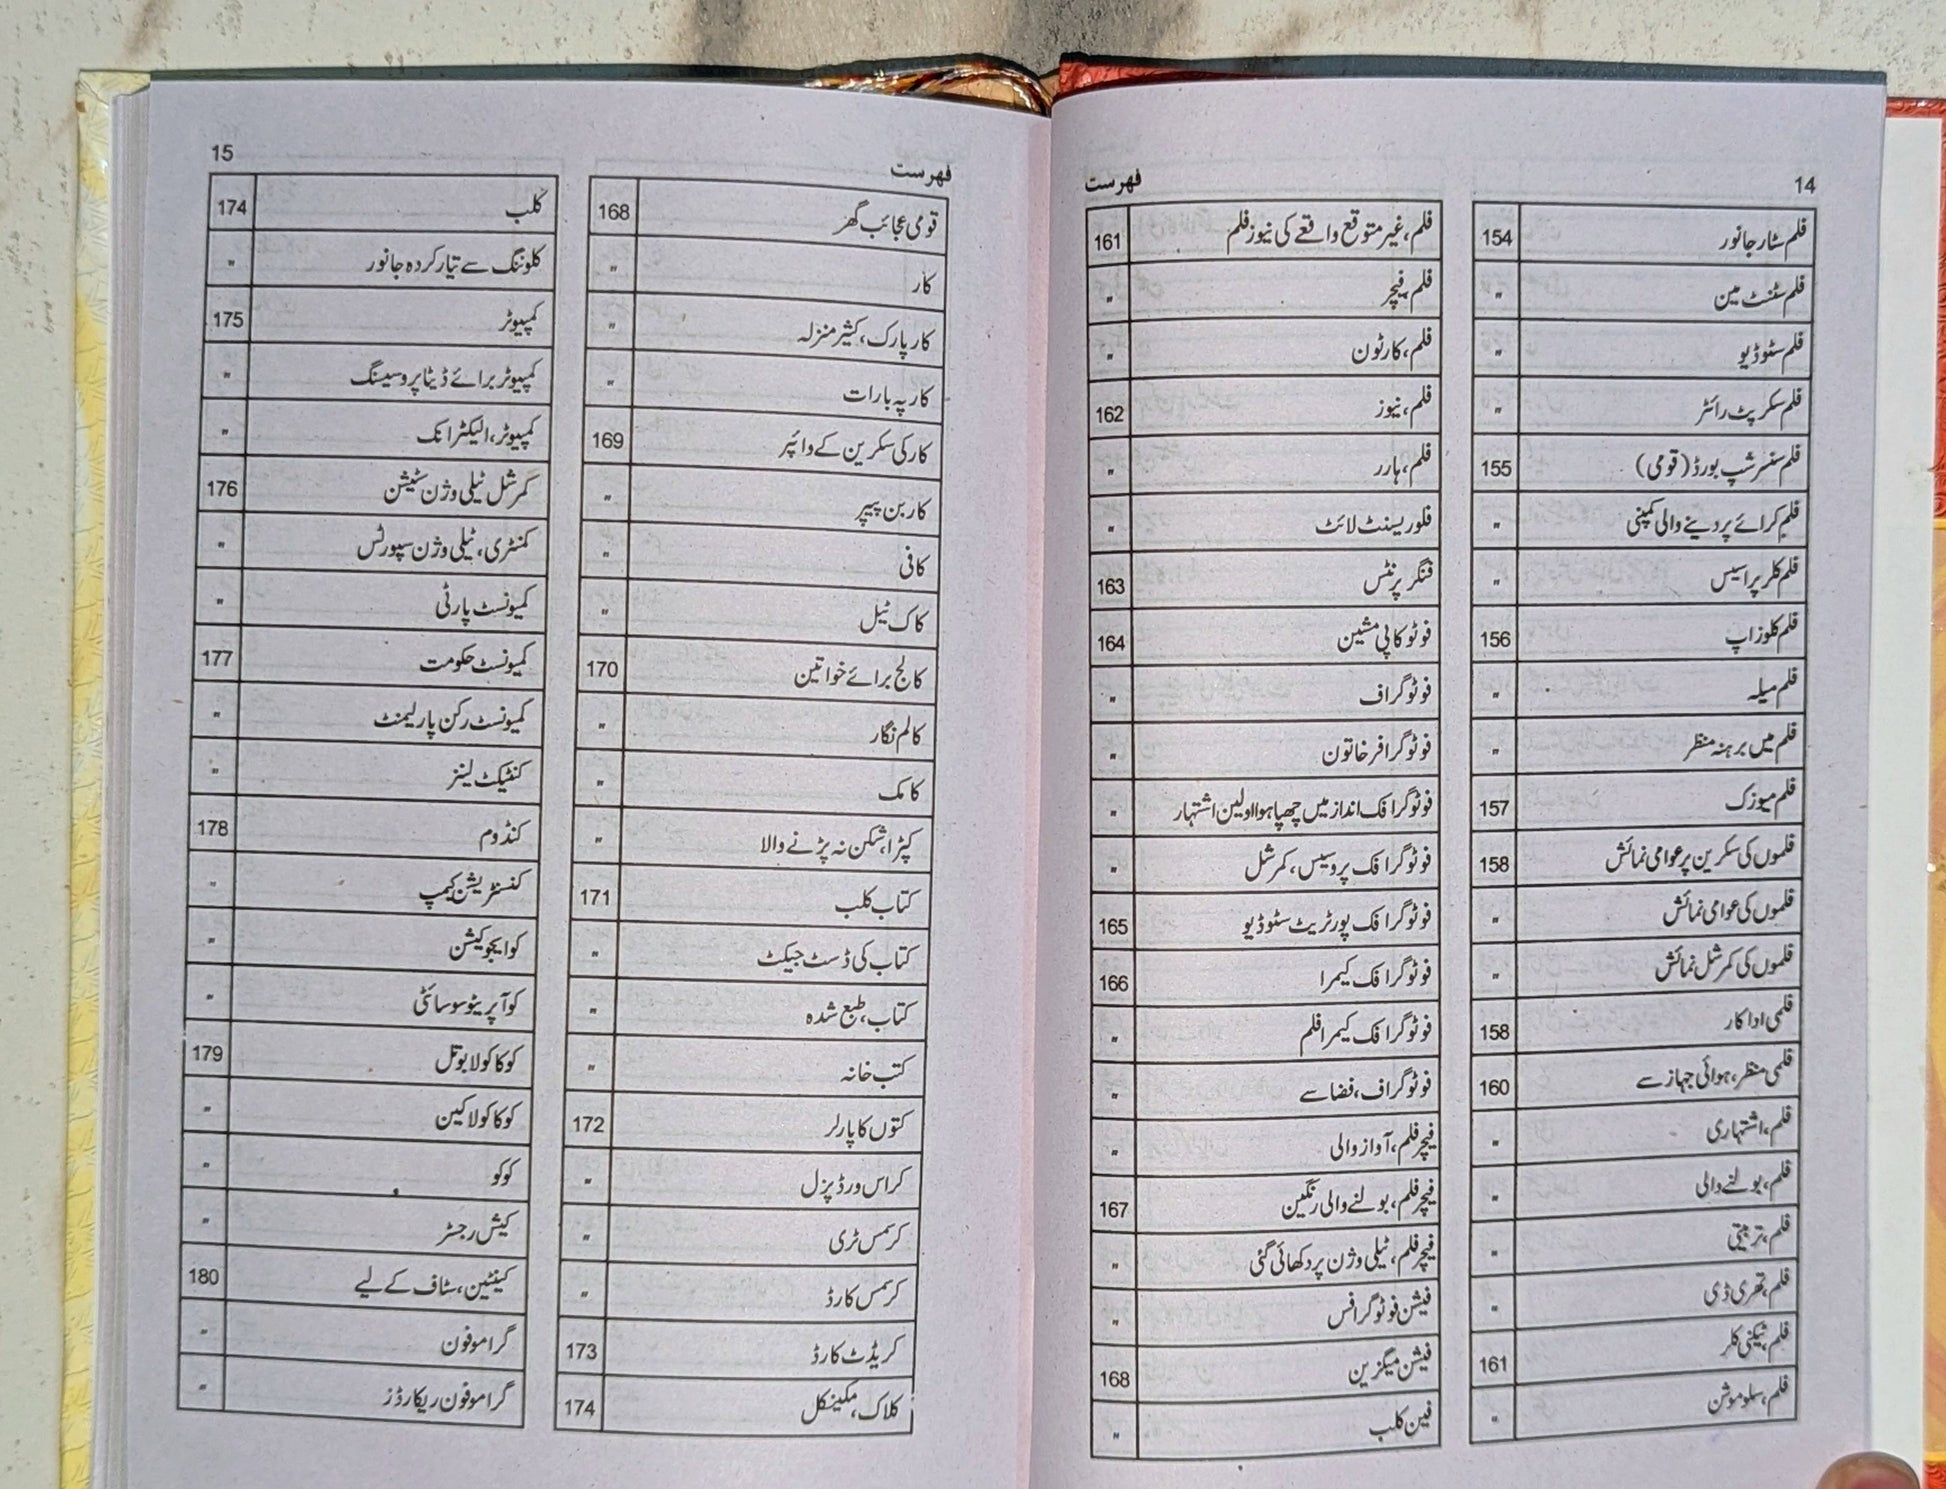 14
فہرست
فلم سٹار جانور 154
فلم سٹنٹ مین "
فلم سٹوڈیو "
فلم سکرپٹ رائٹر "
فلم سنسر شپ بورڈ (قومی) 155
فلم کرائے پر دینے والی کمپنی "
فلم کلر پراسیس "
فلم کلوز اپ 156
فلم میلہ "
فلم میں برہنہ منظر "
فلم میوزک 157
فلموں کی سکرین پر عوامی نمائش 158
فلموں کی عوامی نمائش "
فلموں کی کمرشل نمائش "
فلمی اداکار 158
فلمی منظر، ہوائی جہاز سے 160
فلم، اشتہاری "
فلم، بولنے والی "
فلم، تربیتی "
فلم، تھری ڈی "
فلم، ٹیکنی کلر 161
فلم، سلوموشن "
فلم، غیر متوقع واقعے کی نیوز فلم 161
فلم، فیچر "
فلم، کارٹون "
فلم، نیوز 162
فلم، ہارر "
فلوریسنٹ لائٹ "
فنگر پرنٹس 163
فوٹو کاپی مشین 164
فوٹوگراف "
فوٹوگرافر خاتون "
فوٹوگرافک انداز میں چھپا ہوا اولین اشتہار "
فوٹوگرافک پروسیس، کمرشل "
فوٹوگرافک پورٹریٹ سٹوڈیو 165
فوٹوگرافک کیمرا 166
فوٹوگرافک کیمرا فلم "
فوٹوگراف، فضا سے "
فیچر فلم، آواز والی "
فیچر فلم، بولنے والی رنگین 167
فیچر فلم، ٹیلی وژن پر دکھائی گئی "
فیشن فوٹوگرافس "
فیشن میگزین 168
فین کلب "
فہرست
15
قومی عجائب گھر 168
کار "
کار پارک، کثیر منزلہ "
کار پہ بارات "
کار کی سکرین کے وائپر 169
کاربن پیپر "
کافی "
کاک ٹیل "
کالج برائے خواتین 170
کالم نگار "
کامک "
کپڑا، شکن نہ پڑنے والا "
کتاب کلب 171
کتاب کی ڈسٹ جیکٹ "
کتاب، طبع شدہ "
کتب خانہ "
کتوں کا پارلر 172
کراس ورڈ پزل "
کرسمس ٹری "
کرسمس کارڈ "
کریڈٹ کارڈ 173
کلاک، مکینکل 174
کلب 174
کلوننگ سے تیار کردہ جانور "
کمپیوٹر 175
کمپیوٹر برائے ڈیٹا پروسیسنگ "
کمپیوٹر، الیکٹرانک "
کمرشل ٹیلی وژن سٹیشن 176
کمنٹری، ٹیلی وژن سپورٹس "
کمیونسٹ پارٹی "
کمیونسٹ حکومت 177
کمیونسٹ رکن پارلیمنٹ "
کنٹیکٹ لینز "
کنڈوم 178
کنسنٹریشن کیمپ "
کوایجوکیشن "
کوآپریٹو سوسائٹی "
کوکا کولا بوتل 179
کوکا کولا کین "
کوکو "
کیش رجسٹر "
کینٹین، سٹاف کے لیے 180
گراموفون "
گراموفون ریکارڈز "